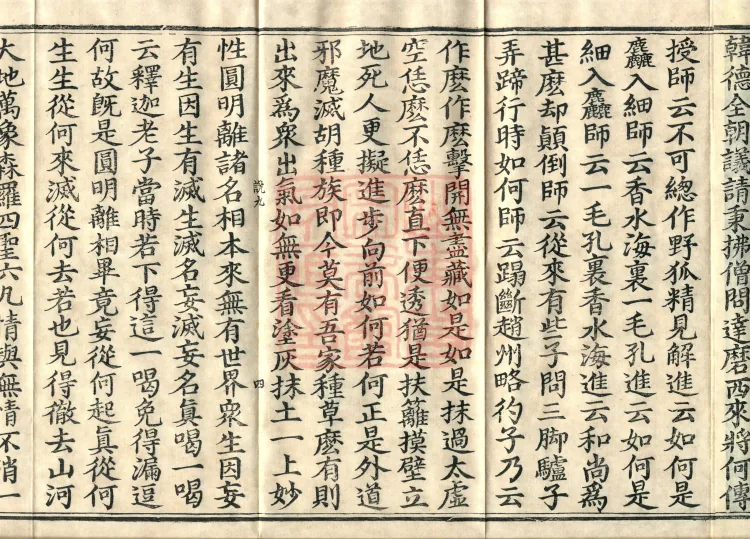 韓德全朝議請秉拂僧問達磨西來將何傳
授師云不可總作野狐精見解進云如何是
麤入細師云香水海裏一毛孔進云如何是
細入麤師云一毛孔裏香水海進云和尚爲
甚麽却顛倒師云從來有些子問三脚驢子
弄蹄行時如何師云蹋斷趙州略彴子乃云
作麽作麽擊開無盡藏如是如是抹過太虛
空恁麽不恁麽直下便透猶是扶籬摸壁立
地死人更擬進步向前如何若何正是外道
邪魔滅胡種族即今莫有吾家種草麽有則
出來爲衆出氣如無更看塗灰抹土一上妙
說九
四
性圓明離諸名相本來無有世界衆生因妄
有生因生有滅生滅名妄滅妄名眞喝一喝
云釋迦老子當時若下得這一喝免得漏逗
何故旣是圓明離相畢竟妄從何起眞從何
生生從何來滅從何去若也見得徹去山河
大地萬象森羅四聖六凡情與無情不消一